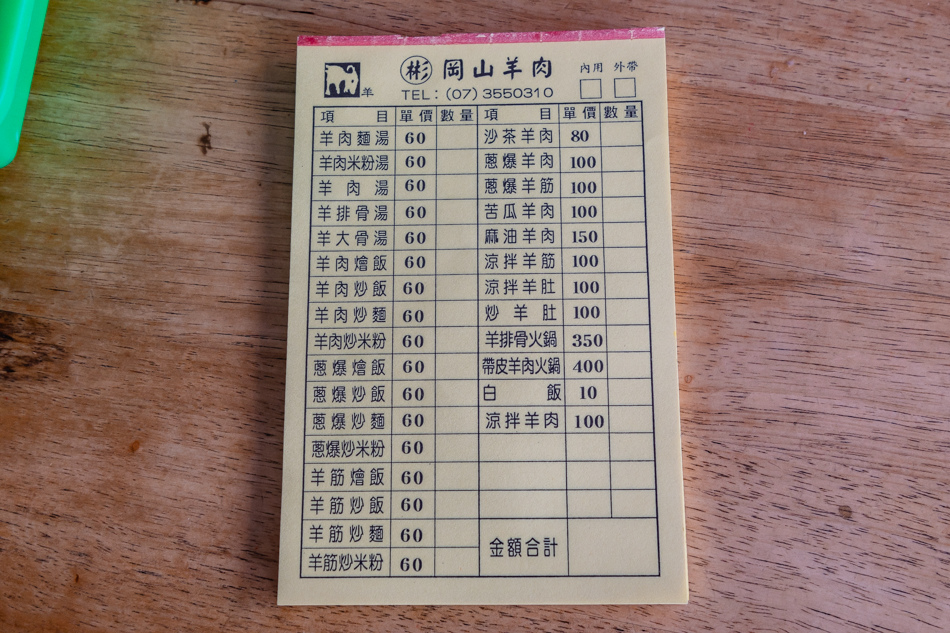 羊 彬 岡山羊肉 內用 外帶
TEL：(07) 3550310
項目 單價 數量 項目 單價 數量
羊肉麵湯 60 沙茶羊肉 80
羊肉米粉湯 60 蔥爆羊肉 100
羊肉湯 60 蔥爆羊筋 100
羊排骨湯 60 苦瓜羊肉 100
羊大骨湯 60 麻油羊肉 150
羊肉燴飯 60 涼拌羊筋 100
羊肉炒飯 60 涼拌羊肚 100
羊肉炒麵 60 炒羊肚 100
羊肉炒米粉 60 羊排骨火鍋 350
蔥爆燴飯 60 帶皮羊肉火鍋 400
蔥爆炒飯 60 白飯 10
蔥爆炒麵 60 涼拌羊肉 100
蔥爆炒米粉 60
羊筋燴飯 60
羊筋炒飯 60
羊筋炒麵 60 金額合計
羊筋炒米粉 60